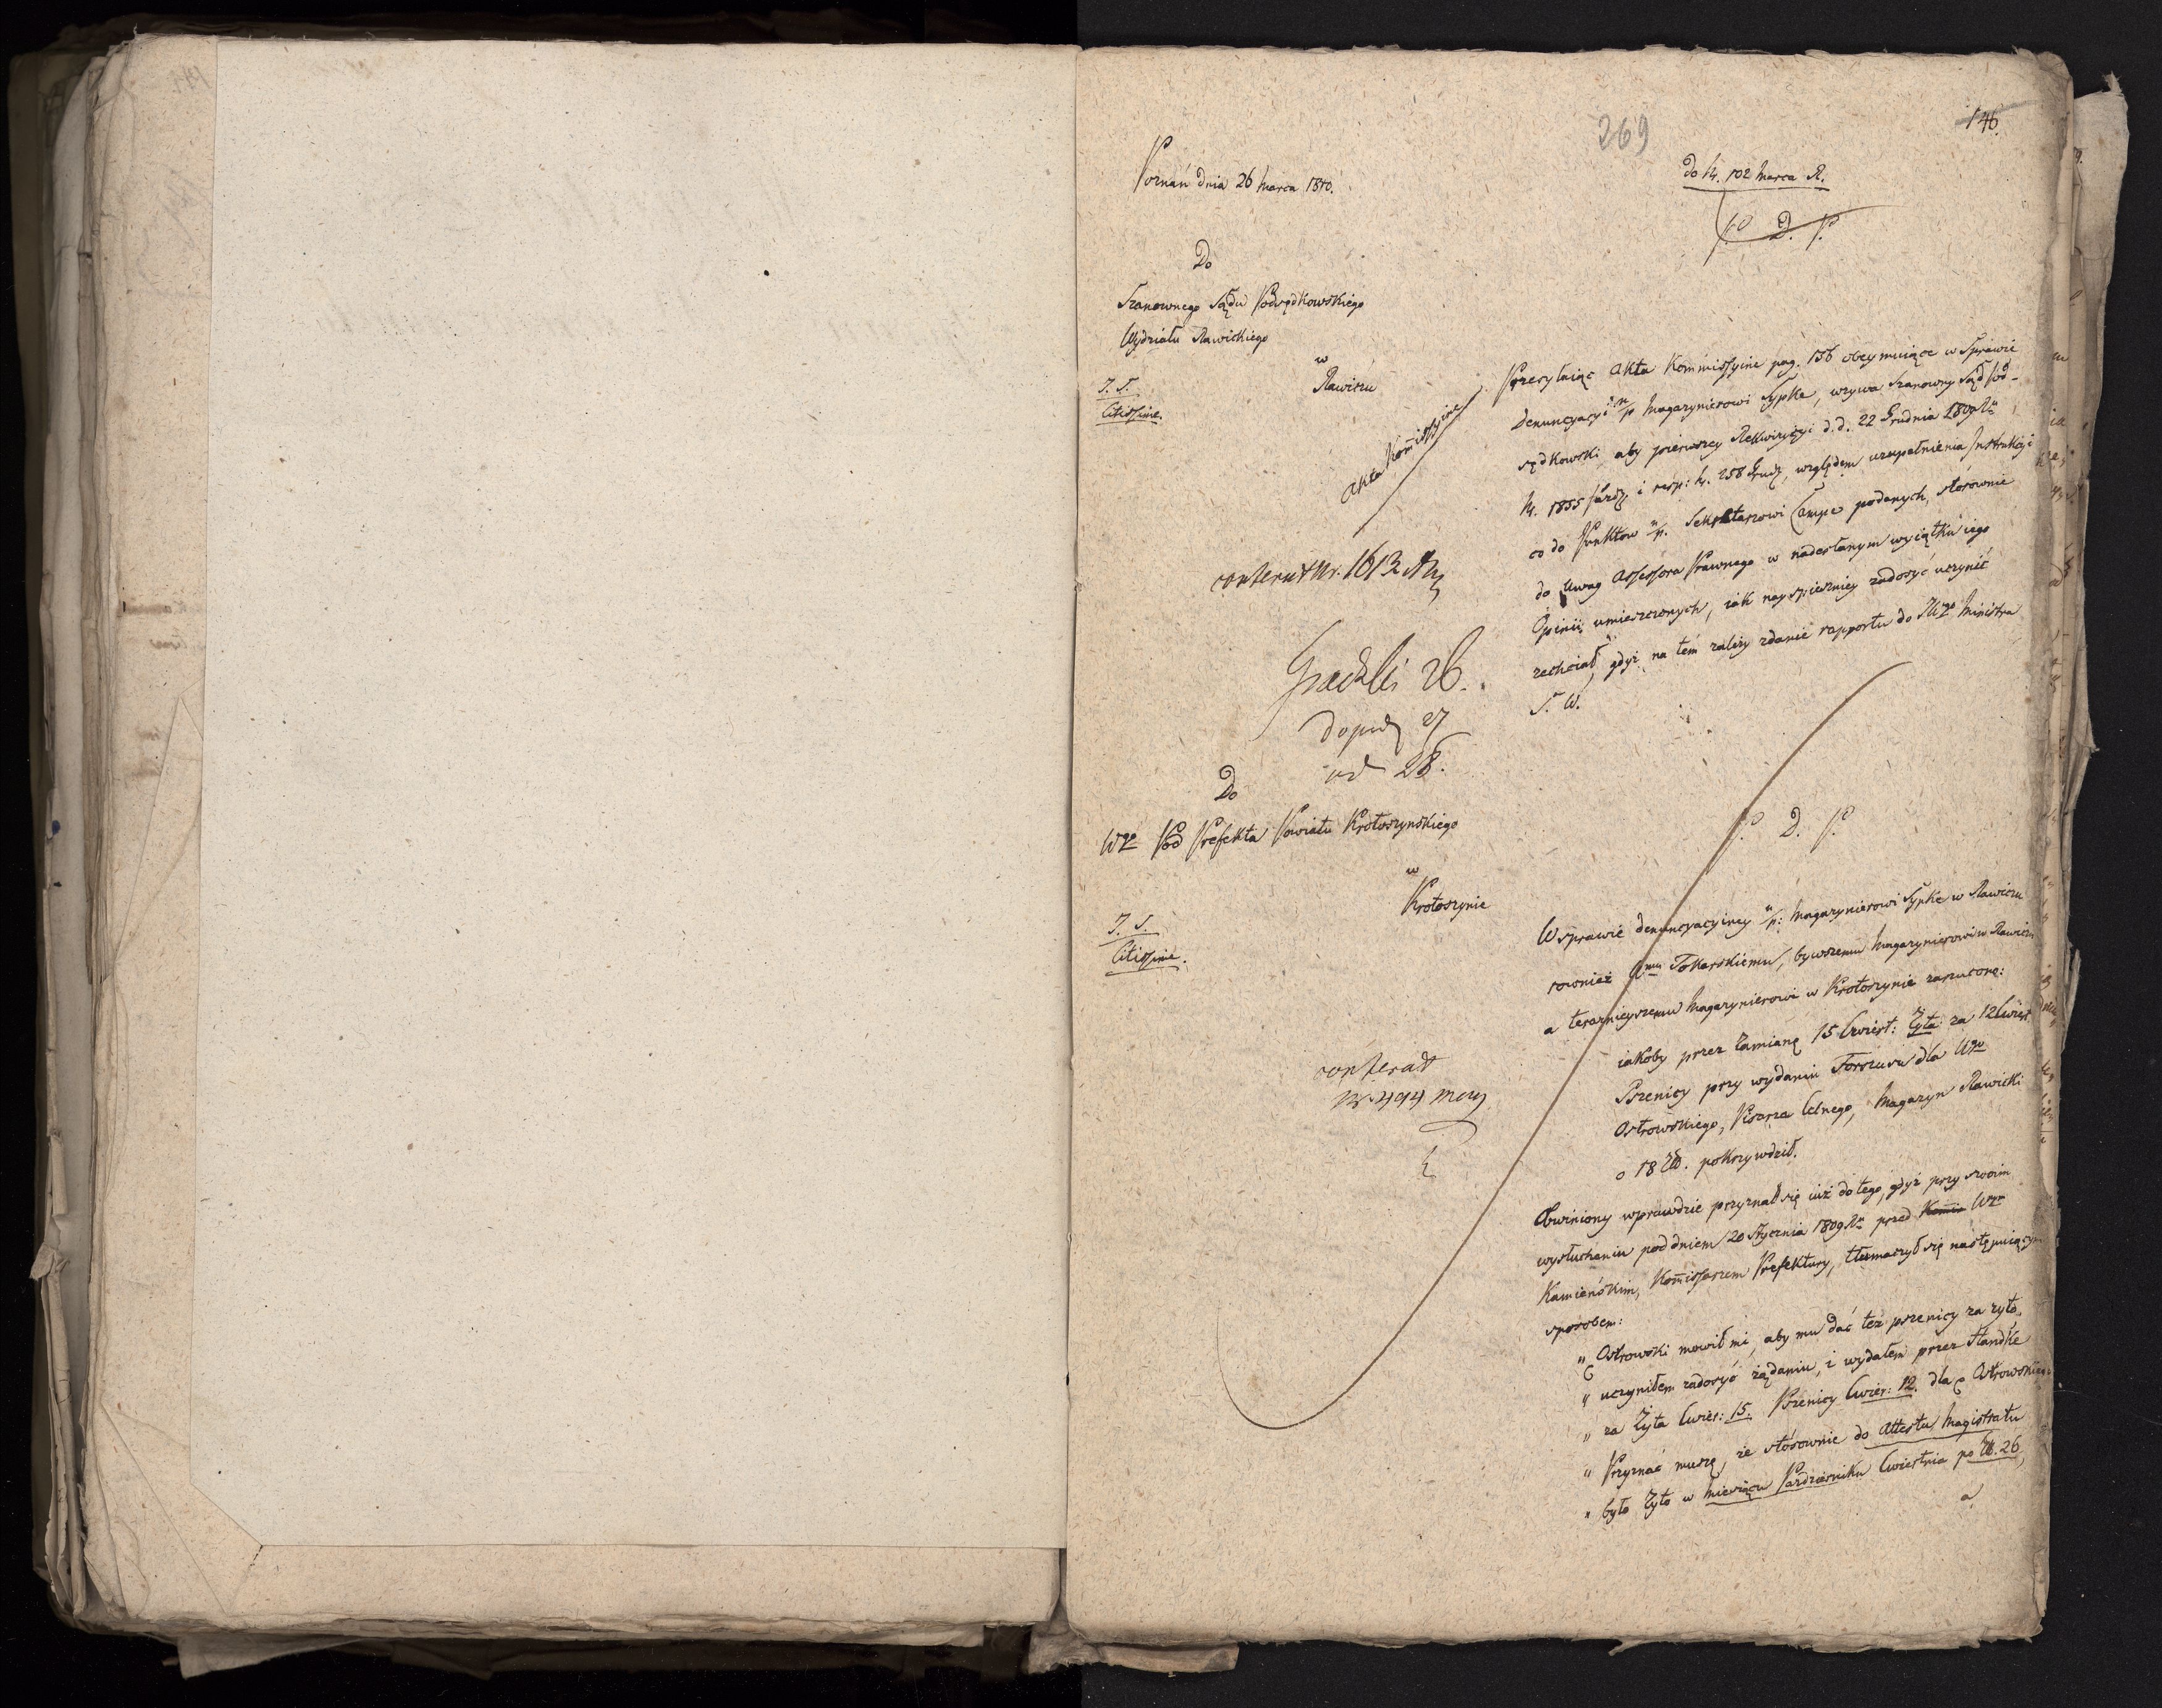 269
146.
Poznań dnia 26 Marca 1810.
do Nr. 102 Marca R.
P. D. P.
Do
Szanownego Sądu Podsędkowskiego
Wydziału Rawickiego
w
Rawiczu
J. S.
Citissime.
Akta Kommissyine
Przesyłaiąc Akta Kommissyine pag. 136 obeymuiące w Sprawie
Denuncyacyi p Magazynierowi Sypke, wzywa Szanowny Sąd Pod-
sędkowski, aby pierwszey Rekwizycyi d. d. 22 Grudnia 1809
Nr. 1855 i resp: Nr. 258 Grud, względem uzupełnienia Instrukcyi
co do Punktow p. Sekretarzowi Campe podanych, stósownie
do Uwag Assessora Prawnego w nadesłanym wyiątku iego
Opinii umieszczonych, iak nayspieszniey zadosyć uczynić
zechciał, gdyż na tém zależy zdanie rapportu do JWgo Ministra
S. W.
Nr. 1613
26.
27
28.
Do
Wgo Pod Prefekta Powiatu Krotoszynskiego
w
Krotoszynie
P. D. P.
J. S.
Citissime.
W sprawie denuncyacyiney p: Magazynierowi Sypke w Rawiczu
rownież Tokarskiemu, bywszemu Magazynierowi w Rawiczu
a teraznieyszemu Magazynierowi w Krotoszynie zarzucono:
iakoby przez zamianę 15 Cwiert: Żyta za 12 Cwiert.
Pszenicy przy wydaniu Forszusu dla Ugo
Ostrowskiego, Pisarza Celnego, Magazyn Rawicki
o 18 pokrzywdził.
Nr. 494
Obwiniony wprawdzie przyznał się iuż do tego, gdyż przy swoim
wysłuchaniu pod dniem 20 Stycznia 1809 przed Wm
Kamieńskim, Komissarzem Prefektury, tłumaczył się następuiącym
sposobem:
" Ostrowski mowił mi, aby mu dać też pszenicy za żyto,
" uczyniłem zadosyć żądaniu, i wydałem przez Standke
" za Żyta Cwier: 15. Pszenicy Cwier: 12. dla Ostrowskiego
" Przyznać muszę, że stósownie do Attestu Magistratu
" było Żyto w Miesiącu Pazdzierniku Cwiertnia po 26,
a